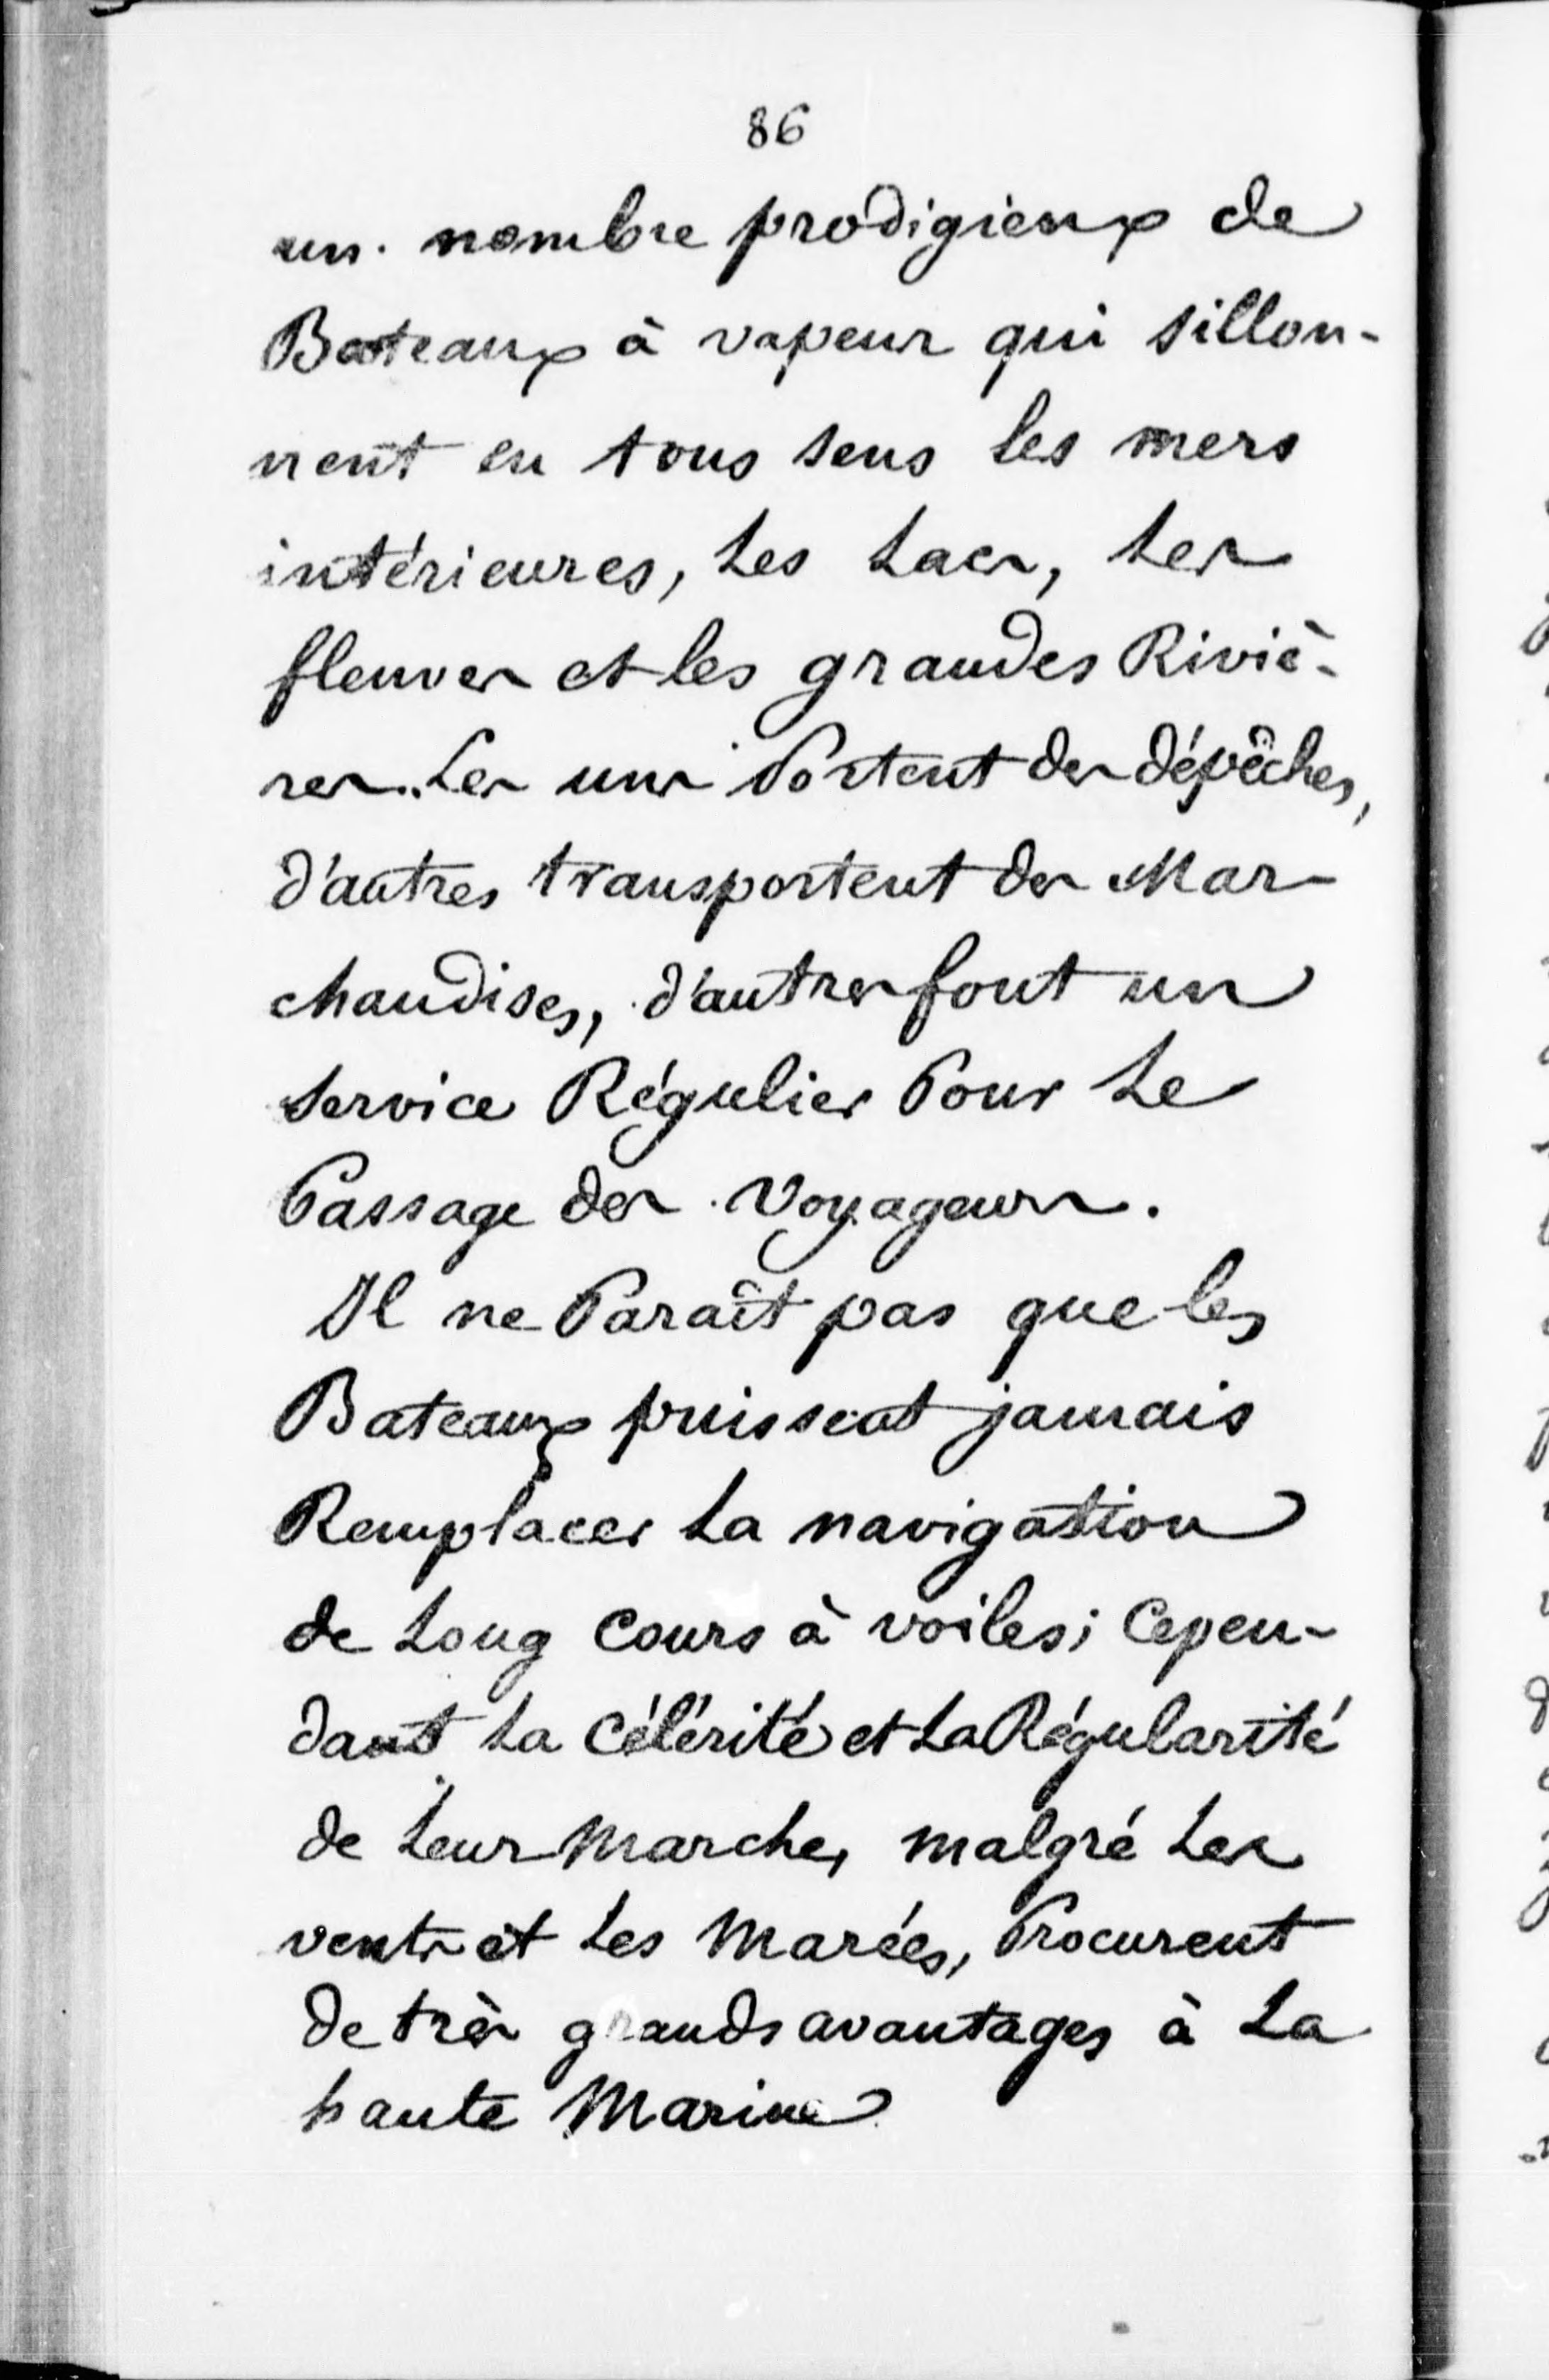 86
un nombre prodigieux de
Bateaux à vapeur qui sillon-
nent en tous sens les mers
intérieures, Les Lacs, Les
fleuves et les grandes Riviè-
res. Les uns Portent des dépêches,
d'autres transportent des Mar-
chandises, d'autres font un
service Régulier Pour Le
Passage des Voyageurs.
Il ne Paraît pas que les
Bateaux puissent jamais
Remplacer La navigation
de Long Cours à voiles; Cepen-
dant La Célérité et La Régularité
de Leur Marche, malgré Les
vents et Les Marées, Procurent
de très grands avantages à La
haute Marine